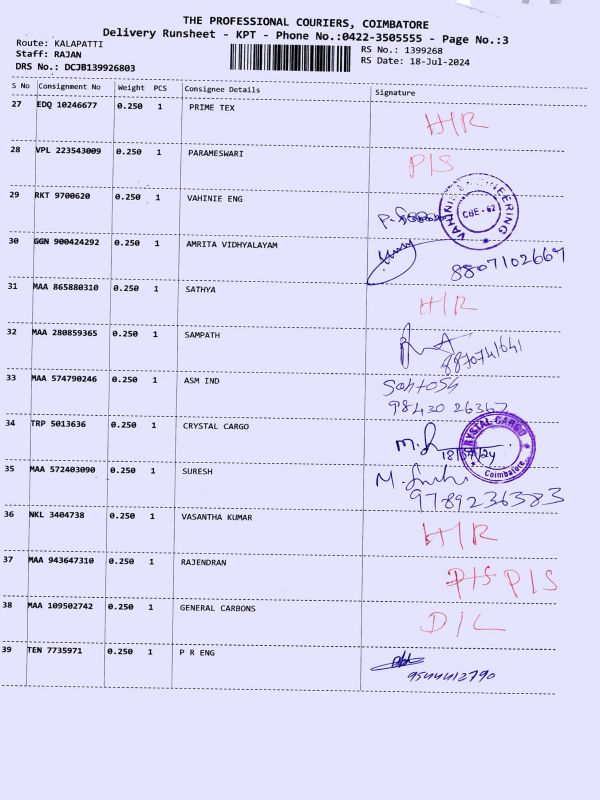 THE PROFESSIONAL COURIERS, COIMBATORE
Delivery Runsheet - KPT - Phone No.:0422-3505555 - Page No.:3
Route: KALAPATTI
Staff: RAJAN
DRS No.: DCJB139926803
RS No.: 1399268
RS Date: 18-Jul-2024
S No Consignment No Weight PCS Consignee Details Signature
27 EDQ 10246677 0.250 1 PRIME TEX H/R
28 VPL 223543009 0.250 1 PARAMESWARI P/S
29 RKT 9700620 0.250 1 VAHINIE ENG
CBE - 62
30 GGN 900424292 0.250 1 AMRITA VIDHYALAYAM 8807102667
31 MAA 865880310 0.250 1 SATHYA H/R
32 MAA 280859365 0.250 1 SAMPATH 8870741641
33 MAA 574790246 0.250 1 ASM IND Santosh
98430 26367
34 TRP 5013636 0.250 1 CRYSTAL CARGO
CRYSTAL CARGO
18/07/24
Coimbatore
35 MAA 572403090 0.250 1 SURESH
9789236383
36 NKL 3404738 0.250 1 VASANTHA KUMAR H/R
37 MAA 943647310 0.250 1 RAJENDRAN P/S P/S
38 MAA 109502742 0.250 1 GENERAL CARBONS D/L
39 TEN 7735971 0.250 1 P R ENG
9544412790